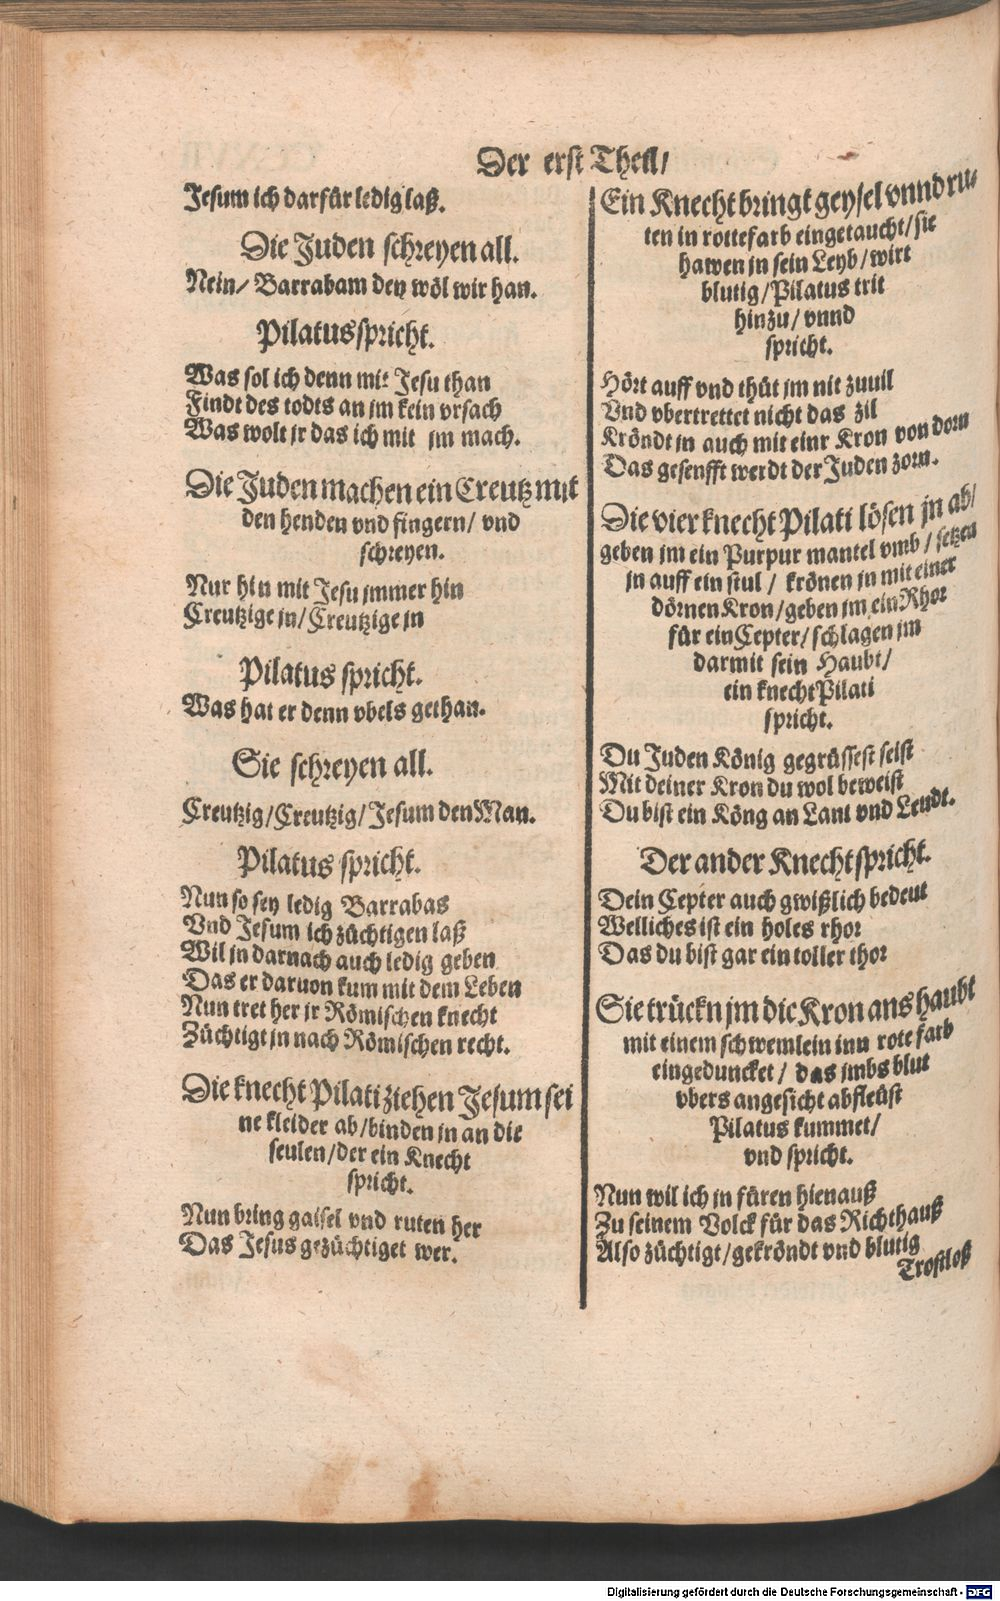 Der erst Theil/
Jesum ich darfür ledig laß.
Die Juden schreyen all.
Nein/ Barrabam den wöl wir han.
Pilatus spricht.
Was sol ich denn mit Jesu than
Findt des todts an jm kein vrsach
Was wolt jr das ich mit jm mach.
Die Juden machen ein Creutz mit
den henden vnd fingern/ vnd
schreyen.
Nur hin mit Jesu jmmer hin
Creutzige jn/Creutzige jn
Pilatus spricht.
Was hat er denn vbels gethan.
Sie schreyen all.
Creutzig/Creutzig/Jesum den Man.
Pilatus spricht.
Nun so sey ledig Barrabas
Vnd Jesum ich züchtigen laß
Wil jn darnach auch ledig geben
Das er daruon kum mit dem Leben
Nun tret her jr Römischen knecht
Züchtigt jn nach Römischen recht.
Die knecht Pilati ziehen Jesum sei
ne kleider ab/binden jn an die
seulen/der ein Knecht
spricht.
Nun bring gaisel vnd ruten her
Das Jesus gezüchtiget wer.
Ein Knecht bringt geysel vnnd ru-
ten in rottefarb eingetaucht/sie
hawen jn sein Leyb/wirt
blutig/Pilatus trit
hinzu/ vnnd
spricht.
Hört auff vnd thüt jm nit zuuil
Vnd vbertrettet nicht das zil
Kröndt jn auch mit einr Kron von dorn
Das gesenfft werdt der Juden zorn.
Die vier knecht Pilati lösen jn ab/
geben jm ein Purpur mantel vmb / setzen
jn auff ein stul / krönen jn mit einer
dörnen Kron/geben jm ein Rhor
für ein Cepter/schlagen jm
darmit sein Haubt/
ein knecht Pilati
spricht.
Du Juden König gegrüssest seist
Mit deiner Kron du wol beweist
Du bist ein Köng an Lant vnd Leudt.
Der ander Knecht spricht.
Dein Cepter auch gwißlich bedeut
Welliches ist ein holes rhor
Das du bist gar ein toller thor
Sie trückn jm die Kron ans haubt
mit einem schwemlein inn rote farb
eingeduncket / das jmbs blut
vbers angesicht abfleüst
Pilatus kummet/
vnd spricht.
Nun wil ich jn füren hienauß
Zu seinem Volck für das Richthauß
Also züchtigt/gekröndt vnd blutig
Trostloß
Digitalisierung gefördert durch die Deutsche Forschungsgemeinschaft - DFG